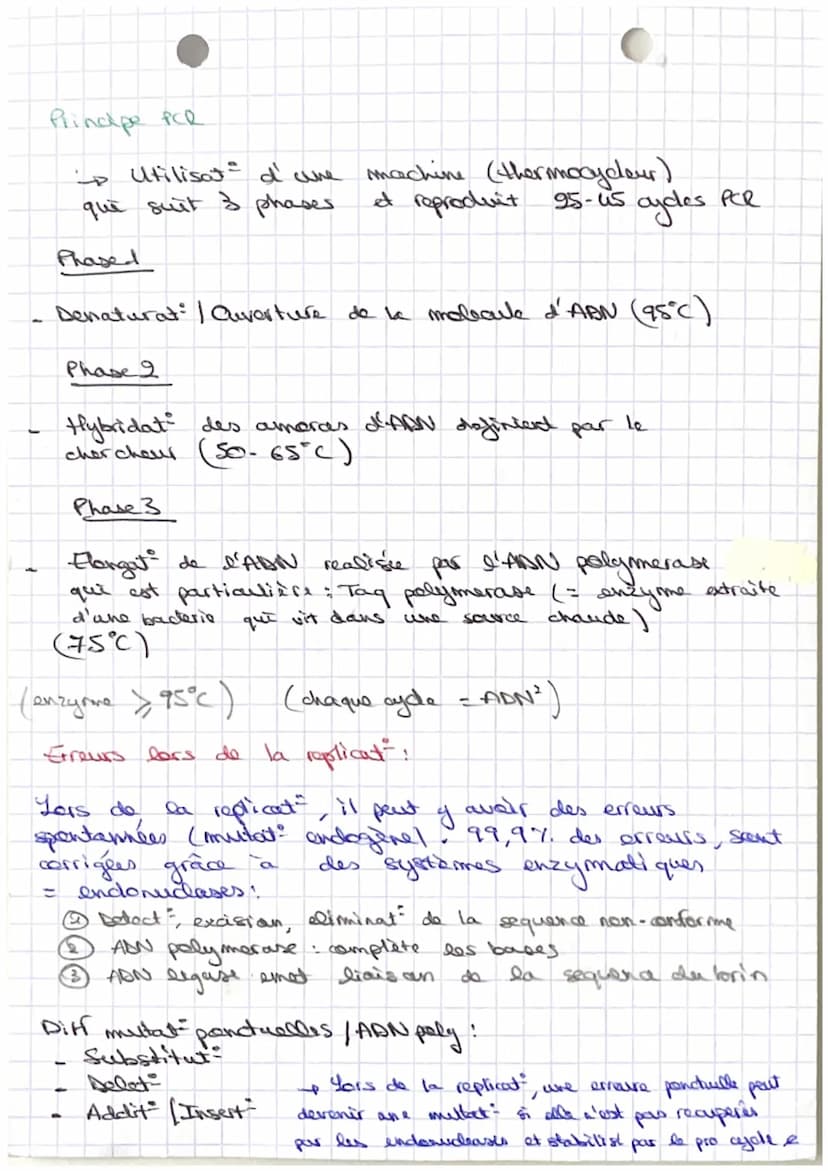 Principe PCR
↳ Utilisat° d'une machine (thermocycleur)
qui suit 3 phases et reproduit 25-45 cycles PCR
Phase 1
- Denaturat° / Ouverture de la molecule d'ADN (95°C)
Phase 2
- Hybridat° des amorces d'ADN definient par le
chercheur (50-65°C)
Phase 3
- Elongat° de l'ADN realisée par l'ADN polymerase
qui est particulière : Taq polymerase (= enzyme extraite
d'une bacterie qui vit dans une source chaude)
(75°C)
(enzyme ⩾ 95°C) (chaque cycle = ADN²)
Erreurs lors de la replicat° :
Lors de la replicat°, il peut y avoir des erreurs
spontannées (mutat° endogène). 99,9% des erreurs, sont
corrigées grâce à des systèmes enzymatiques
= endonucleases :
① Detect°, excision, eliminat° de la sequence non-conforme
② ADN polymerase : complète les bases
③ ADN ligase emet liaison de la sequence du brin
Diff mutat° ponctuelles / ADN poly :
- Substitut°
- Delet°
- Addit° / Insert°
→ Lors de la replicat°, une erreure ponctuelle peut
devenir une mutat° si elle n'est pas recuperés
par les endonucleases et stabilisé par le pro cycle